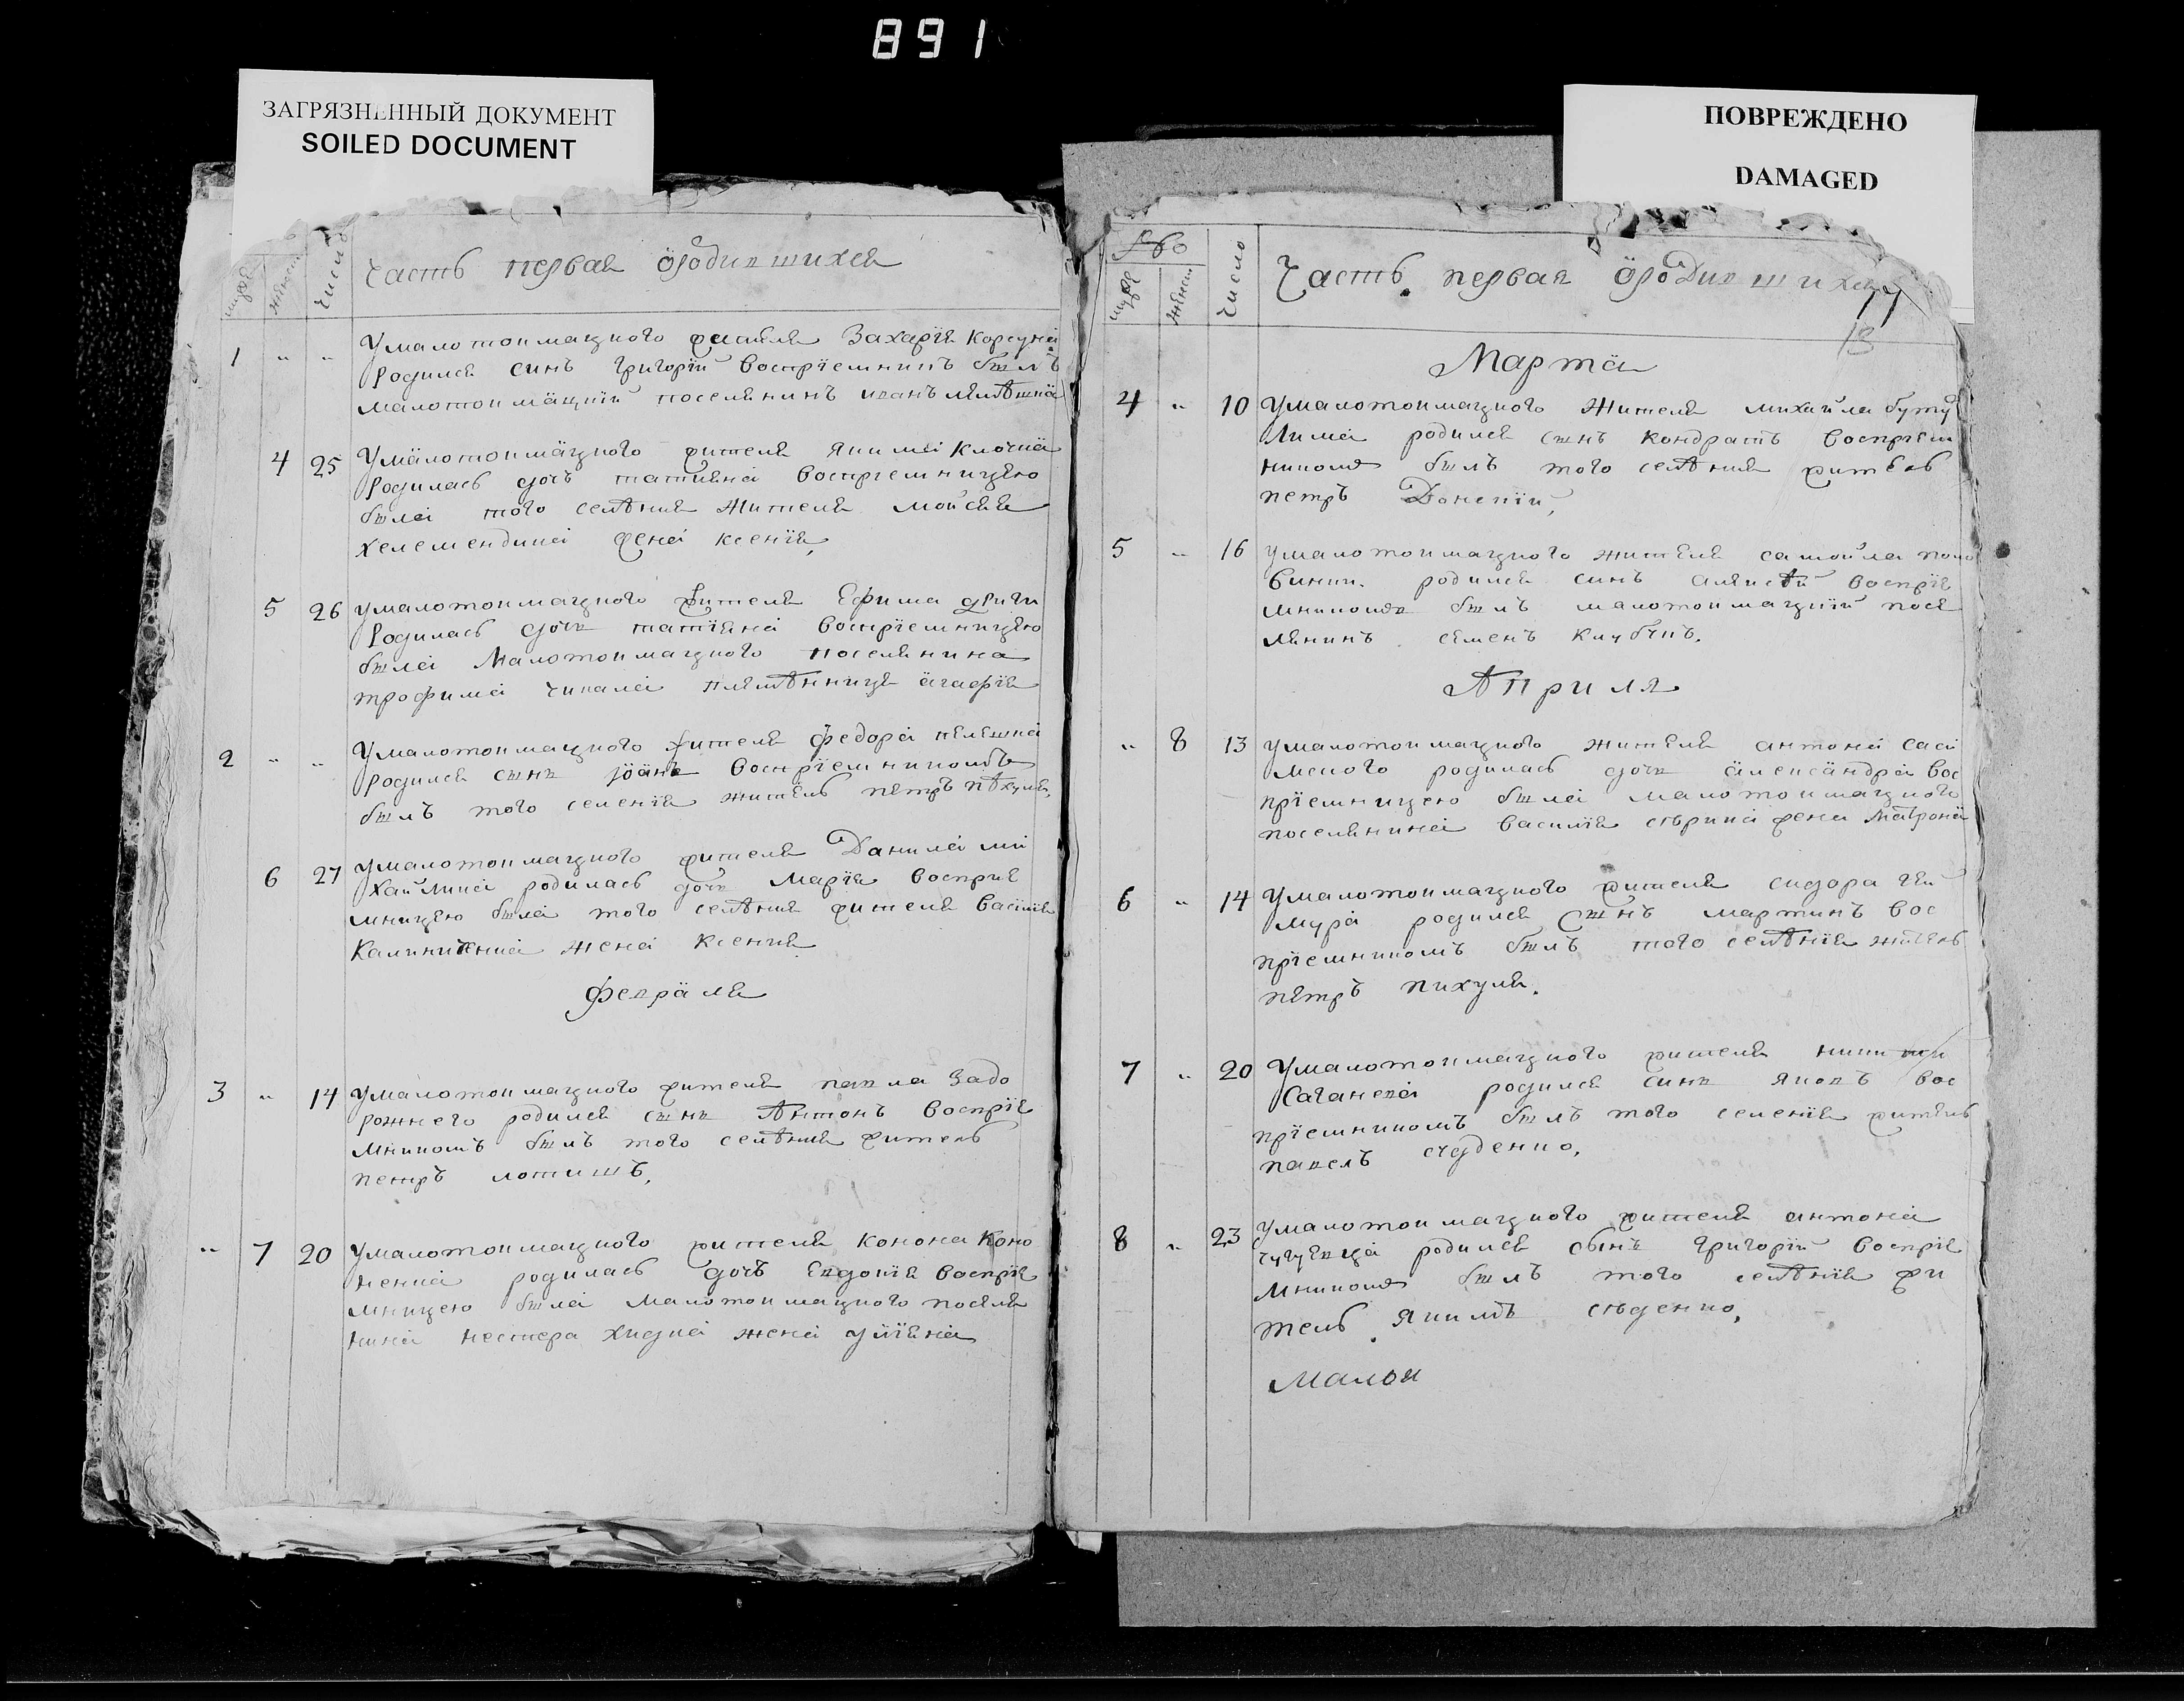 891
ЗАГРЯЗНЕННЫЙ ДОКУМЕНТ
SOILED DOCUMENT
муже
женск
Число
Часть первая ородившихся
1 " " Умалотокмацкого жителя Захарїя Корсуна
родился синъ григорїй воспрїемникъ былъ
малотокмацкїй поселянинъ иванъ
4 25 Умалотокмацкого жителя якима Клочка
родилась дочь татияна воспрїемницею
была того селѣния жителя мойсея
келемендика жена ксенїя,
5 26 умалотокмацкого жителя Ефима
родилась дочь татїяна воспрїемницею
была Малотокмацкого поселянина
трофима чикала племѣнница агафїя
2 " " Умалотокмацкого жителя федора пелешка
родился сынъ іоанъ воспрїемникомъ
былъ того селенїя житель петръ пѣхуля,
6 27 умалотокмацкого жителя Данила ми
хайлика родилась дочь Марїя воспрїе
мницею была того селѣния жителя василїя
Калиниченка жена ксенїя
февраля
3 " 14 умалотокмацкого жителя павла Задо
рожнего родился сынъ Антонъ воспрїе
мникомъ былъ того селѣния житель
петръ лотишъ,
" 7 20 умалотокмацкого жителя конона Коно
ненка родилась дочъ Евдокїя воспрїе
мницею была малотокмацкого поселя
нина нестера хижка жена улїяна
ПОВРЕЖДЕНО
DAMAGED
муже
женск
Число
Часть первая ородившихся
17
13
Марта
4 " 10 Умалотокмацкого жителя михайла буту
лима родился сынъ кондратъ воспрїем
никомъ былъ того селѣния житель
петръ Донскїй,
5 " 16 умалотокмацкого жителя самойла поло
винки родился синъ алексѣй воспрїе
мникомъ былъ малотокмацкїй посе
лянинъ семенъ клубчъ.
Априля
" 8 13 умалотокмацкого жителя антона саса
мского родилась дочь александра вос
прїемницею была малотокмацкого
поселянина василїя сѣрика жена матрона
6 " 14 Умалотокмацкого жителя сидора гай
мура родился сынъ мартинъ вос
прїемникомъ былъ того селѣнїя житель
петръ пихуля.
7 " 20 Умалотокмацкого жителя
Саганска родился синъ яковъ вос
прїемникомъ былъ того селенїя житель
павелъ студенко,
8 " 23 умалотокмацкого жителя антона
чугуевца родился сынъ григорїй воспрїе
мникомъ былъ того селѣнїя жи
тель якимъ студенко,
Малои